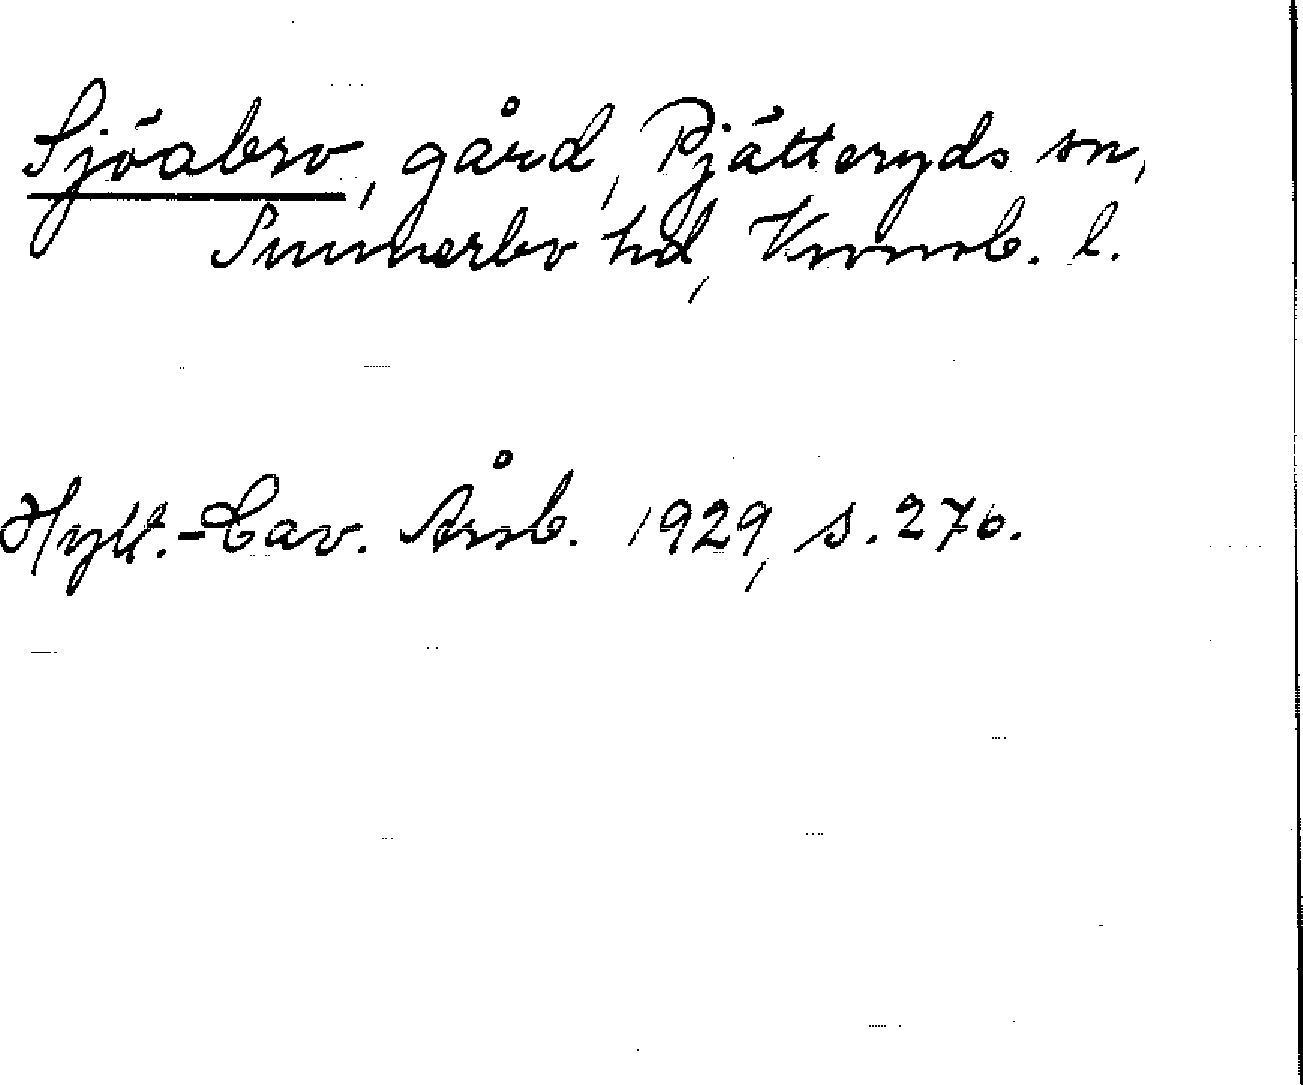 Sjöabro, gård, Pjätteryds sn,
Sunnerbo hd, Kronob. l.
Hylt.-Cav. Årsb. 1929, s. 276.